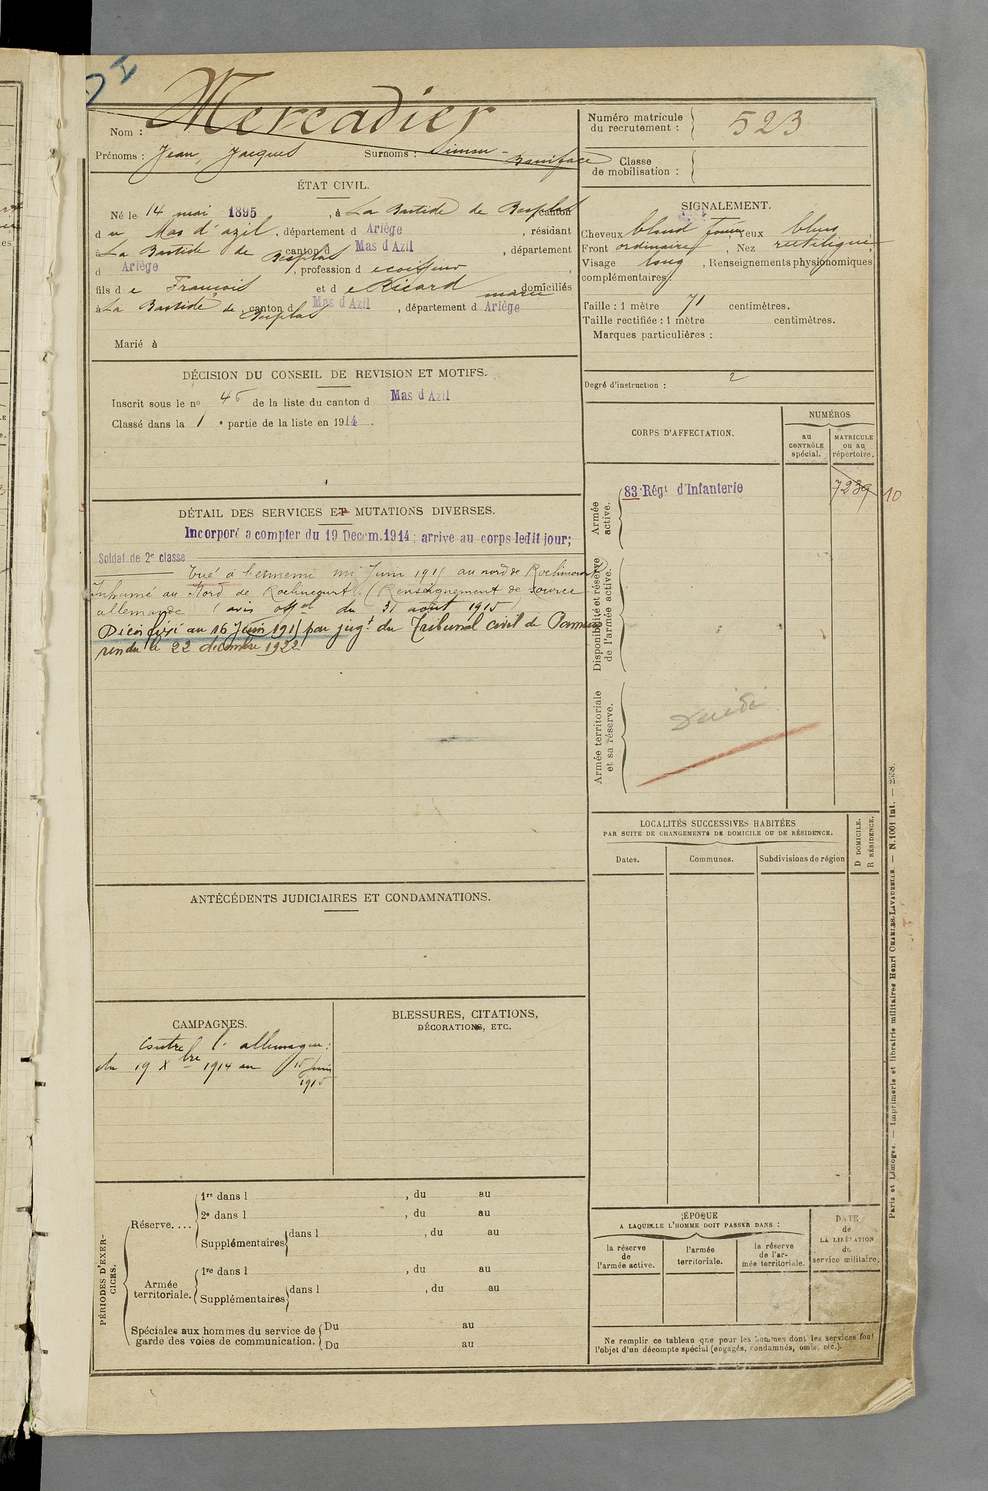 Mercadier
Nom :
Prénoms : Jean, Jacques Surnoms : Simon - Boniface
Numéro matricule
du recrutement : 523
Classe
de mobilisation :
ÉTAT CIVIL.
Né le 14 mai 1895, à La Bastide de Besplas canton
du Mas d'azil, département d Ariège, résidant
à La Bastide de Besplas canton d Mas d'Azil, département
d Ariège, profession de coiffeur,
fils de François et de Ricard marie domiciliés
à La Bastide de Besplas, canton d Mas d'Azil, département d Ariège
Marié à
SIGNALEMENT.
Cheveux blond foncé, Yeux bleus
Front ordinaire, Nez rectiligne
Visage long, Renseignements physionomiques
complémentaires
Taille : 1 mètre 71 centimètres.
Taille rectifiée : 1 mètre centimètres.
Marques particulières :
Degré d'instruction : 2
DÉCISION DU CONSEIL DE REVISION ET MOTIFS.
Inscrit sous le no 45 de la liste du canton d Mas d'Azil
Classé dans la 1e partie de la liste en 1914.
CORPS D'AFFECTATION.
NUMÉROS
au
CONTRÔLE
spécial.
MATRICULE
ou au
répertoire.
Armée
active.
83e Régt d'Infanterie
7239 10
Disponibilité et réserve
de l'armée active.
Armée territoriale
et sa réserve.
DÉTAIL DES SERVICES ET MUTATIONS DIVERSES.
Incorporé à compter du 19 Décem. 1914; arrivé au corps ledit jour;
Soldat de 2e classe
Tué à l'ennemi mi Juin 1915 au nord de Roclincourt
Inhumé au Nord de Roclincourt. (Renseignement de source
allemande (avis offel du 31 août 1915)
Décès fixé au 16 Juin 1915 par jugt du Tribunal civil de Pamiers
rendu le 22 décembre 1922
LOCALITÉS SUCCESSIVES HABITÉES
PAR SUITE DE CHANGEMENTS DE DOMICILE OU DE RÉSIDENCE.
Dates.
Communes.
Subdivisions de région
D DOMICILE.
R RÉSIDENCE.
ANTÉCÉDENTS JUDICIAIRES ET CONDAMNATIONS.
CAMPAGNES.
Contre l'allemagne :
du 19 Xbre 1914 au 15 juin
1915
BLESSURES, CITATIONS,
DÉCORATIONS, ETC.
PÉRIODES D'EXER-
CICES.
Réserve....
1re dans l , du au
2e dans l , du au
Supplémentaires dans l , du au
Armée
territoriale.
1re dans l , du au
Supplémentaires dans l , du au
Spéciales aux hommes du service de
garde des voies de communication.
Du au
Du au
ÉPOQUE
A LAQUELLE L'HOMME DOIT PASSER DANS :
la réserve
de
l'armée active.
l'armée
territoriale.
la réserve
de l'ar-
mée territoriale.
DATE
de
LA LIBÉRATION
du
service militaire.
Ne remplir ce tableau que pour les hommes dont les services font
l'objet d'un décompte spécial (engagés, condamnés, omis, etc.).
Paris et Limoges. — Imprimerie et librairie militaires Henri CHARLES-LAVAUZELLE. — N. 1001 int. — 2558.